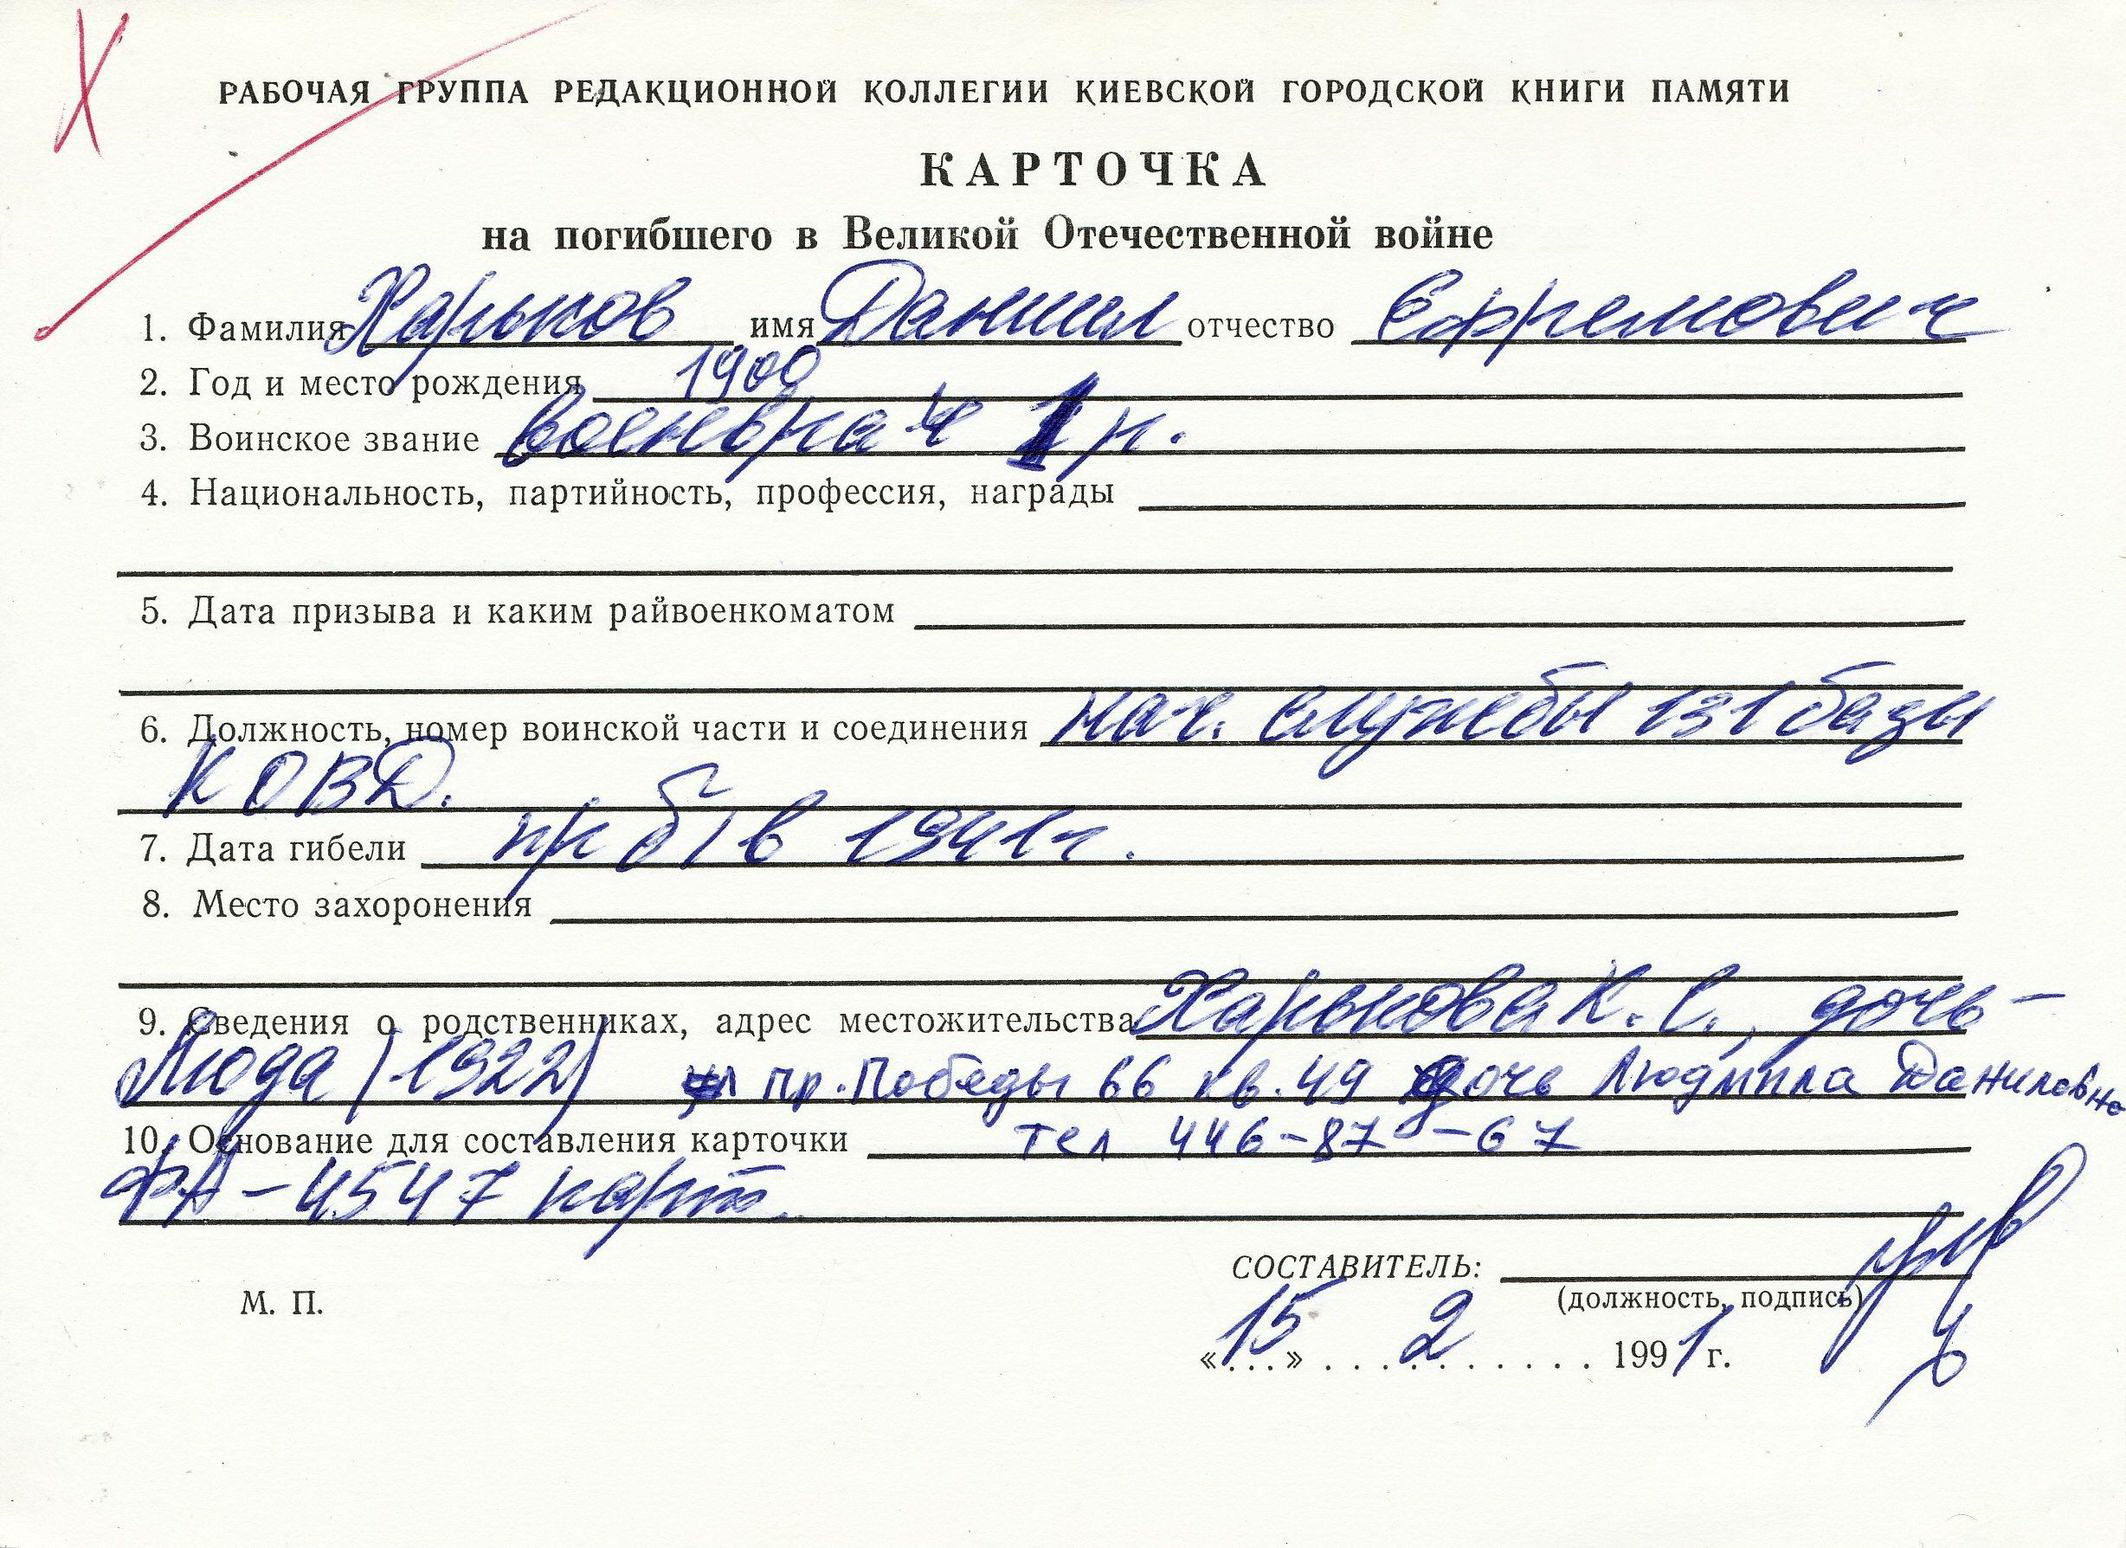 Х
РАБОЧАЯ ГРУППА РЕДАКЦИОННОЙ КОЛЛЕГИИ КИЕВСКОЙ ГОРОДСКОЙ КНИГИ ПАМЯТИ
КАРТОЧКА
на погибшего в Великой Отечественной войне
1. Фамилия Харьков имя Даниил отчество Ефремович
2. Год и место рождения 1900
3. Воинское звание военврач 1 р.
4. Национальность, партийность, профессия, награды
5. Дата призыва и каким райвоенкоматом
6. Должность, номер воинской части и соединения нач. службы 131 базы
КОВО.
7. Дата гибели пр б/в 1941г.
8. Место захоронения
9. Сведения о родственниках, адрес местожительства Харькова К. С., дочь -
Люда (1922) пр. Победы 66 кв. 49 дочь Людмила Даниловна
10. Основание для составления карточки тел 446-87-67
ФА-4547 карт.
СОСТАВИТЕЛЬ:
М. П.
(должность, подпись)
«15» 2 1991 г.